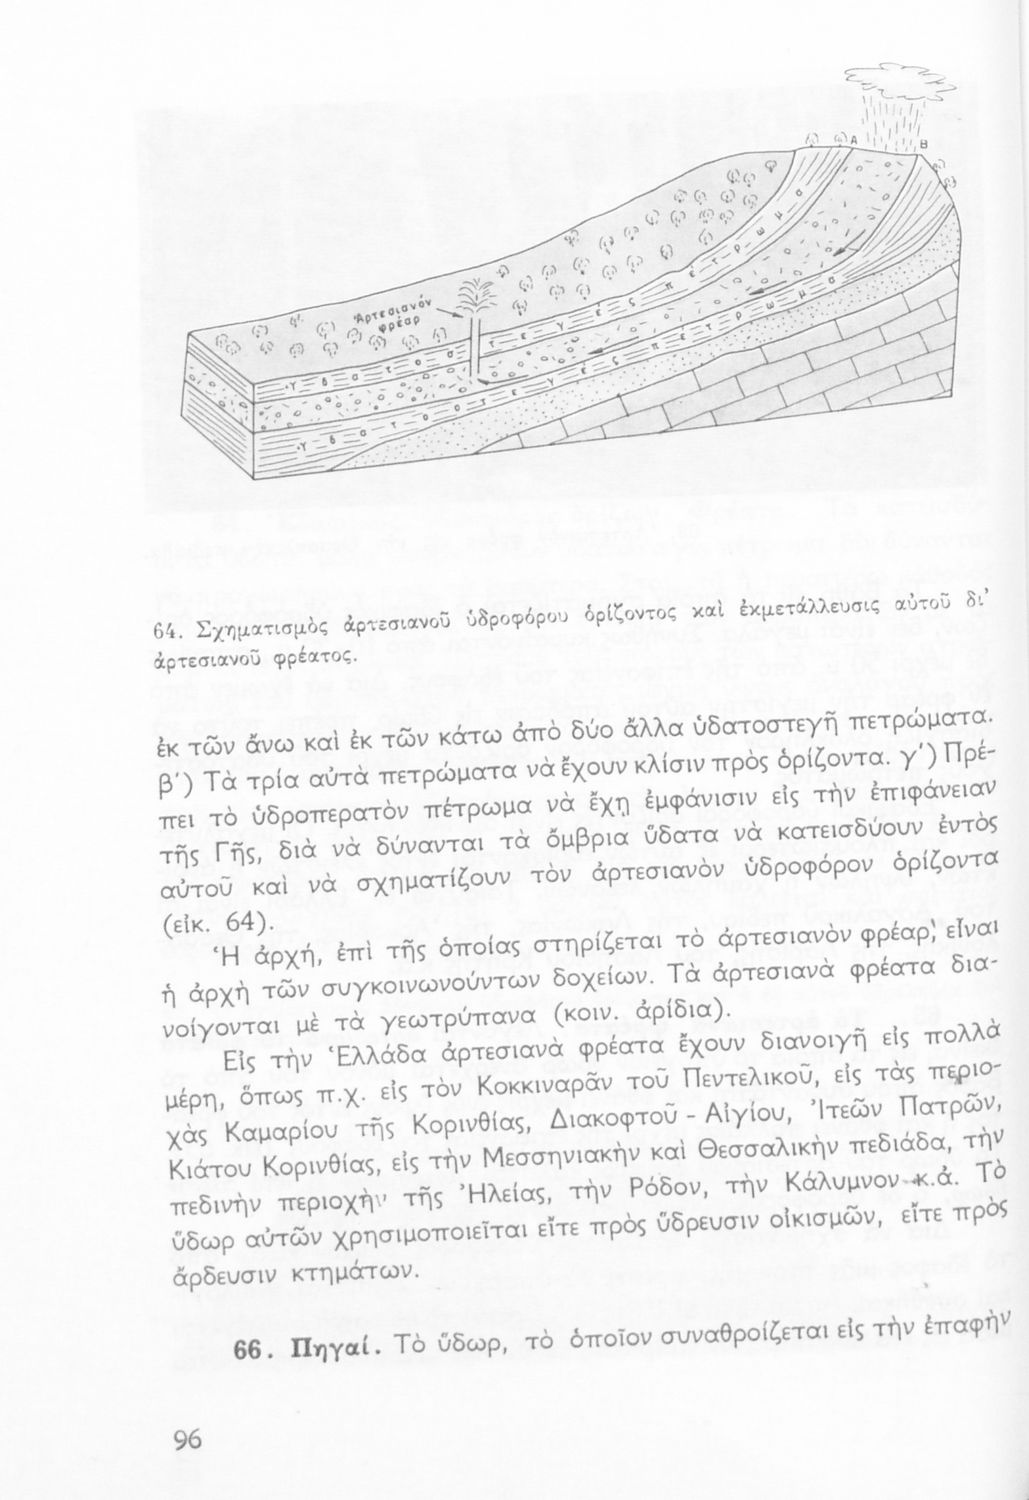 Α
Β
Ἀρτεσιανόν
φρέαρ
Υδατοστεγές πέτρωμα
Υδατοστεγές πέτρωμα
64. Σχηματισμὸς ἀρτεσιανοῦ ὑδροφόρου ὁρίζοντος καὶ ἐκμετάλλευσις αὐτοῦ δι᾽
ἀρτεσιανοῦ φρέατος.
ἐκ τῶν ἄνω καὶ ἐκ τῶν κάτω ἀπὸ δύο ἄλλα ὑδατοστεγῆ πετρώματα.
β΄) Τὰ τρία αὐτὰ πετρώματα νὰ ἔχουν κλίσιν πρὸς ὁρίζοντα. γ΄) Πρέ-
πει τὸ ὑδροπερατὸν πέτρωμα νὰ ἔχῃ ἐμφάνισιν εἰς τὴν ἐπιφάνειαν
τῆς Γῆς, διὰ νὰ δύνανται τὰ ὄμβρια ὕδατα νὰ κατεισδύουν ἐντὸς
αὐτοῦ καὶ νὰ σχηματίζουν τὸν ἀρτεσιανὸν ὑδροφόρον ὁρίζοντα
(εἰκ. 64).
Ἡ ἀρχή, ἐπὶ τῆς ὁποίας στηρίζεται τὸ ἀρτεσιανὸν φρέαρ, εἶναι
ἡ ἀρχὴ τῶν συγκοινωνούντων δοχείων. Τὰ ἀρτεσιανὰ φρέατα δια-
νοίγονται μὲ τὰ γεωτρύπανα (κοιν. ἀρίδια).
Εἰς τὴν Ἑλλάδα ἀρτεσιανὰ φρέατα ἔχουν διανοιγῆ εἰς πολλὰ
μέρη, ὅπως π.χ. εἰς τὸν Κοκκιναρᾶν τοῦ Πεντελικοῦ, εἰς τὰς περιο-
χὰς Καμαρίου τῆς Κορινθίας, Διακοφτοῦ - Αἰγίου, Ἰτεῶν Πατρῶν,
Κιάτου Κορινθίας, εἰς τὴν Μεσσηνιακὴν καὶ Θεσσαλικὴν πεδιάδα, τὴν
πεδινὴν περιοχὴν τῆς Ἠλείας, τὴν Ρόδον, τὴν Κάλυμνον κ.ἀ. Τὸ
ὕδωρ αὐτῶν χρησιμοποιεῖται εἴτε πρὸς ὕδρευσιν οἰκισμῶν, εἴτε πρὸς
ἄρδευσιν κτημάτων.
66. Πηγαί. Τὸ ὕδωρ, τὸ ὁποῖον συναθροίζεται εἰς τὴν ἐπαφὴν
96